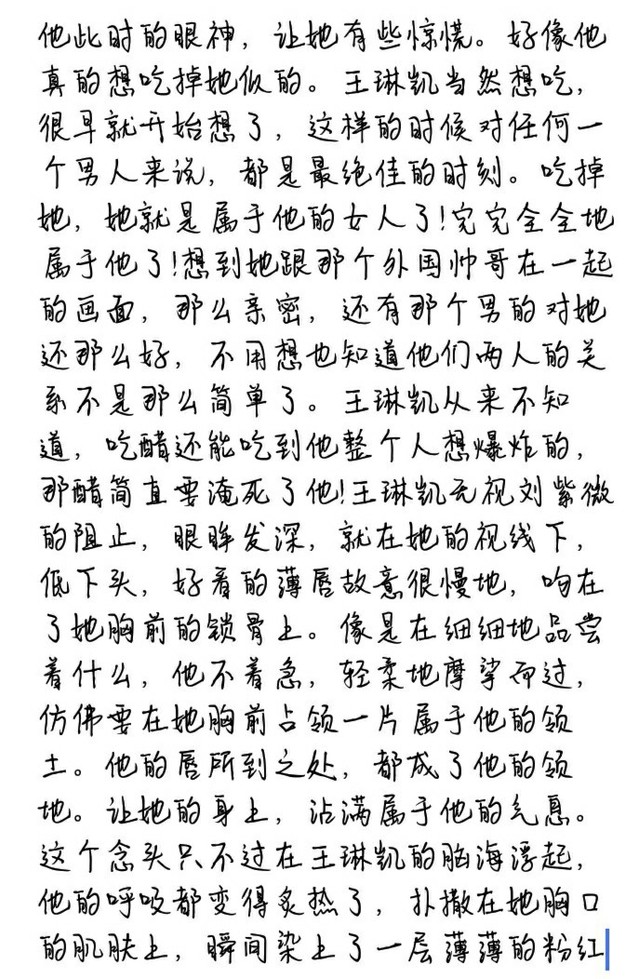 他此时的眼神，让她有些惊慌。好像他
真的想吃掉她似的。王琳凯当然想吃，
很早就开始想了，这样的时候对任何一
个男人来说，都是最绝佳的时刻。吃掉
她，她就是属于他的女人了!完完全全地
属于他了!想到她跟那个外国帅哥在一起
的画面，那么亲密，还有那个男的对她
还那么好，不用想也知道他们两人的关
系不是那么简单了。王琳凯从来不知
道，吃醋还能吃到他整个人想爆炸的，
那醋简直要淹死了他!王琳凯无视刘紫微
的阻止，眼眸发深，就在她的视线下，
低下头，好看的薄唇故意很慢地，吻在
了她胸前的锁骨上。像是在细细地品尝
着什么，他不着急，轻柔地摩挲而过，
仿佛要在她胸前占领一片属于他的领
土。他的唇所到之处，都成了他的领
地。让她的身上，沾满属于他的气息。
这个念头只不过在王琳凯的脑海浮起，
他的呼吸都变得炙热了，扑撒在她胸口
的肌肤上，瞬间染上了一层薄薄的粉红